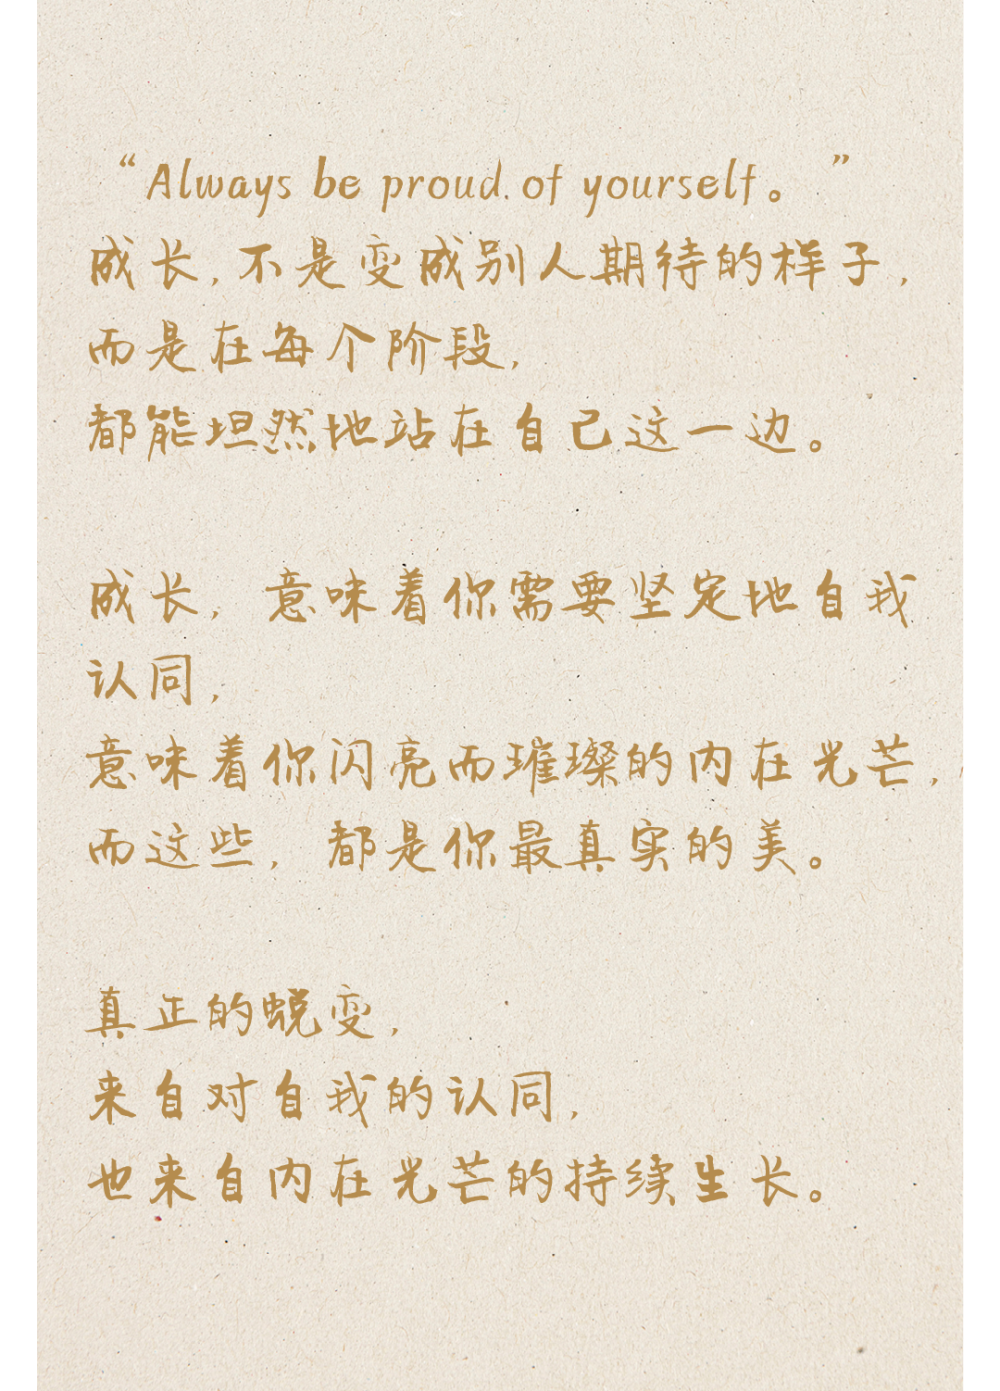 “Always be proud.of yourself。”
成长,不是变成别人期待的样子,
而是在每个阶段,
都能坦然地站在自己这一边。
成长, 意味着你需要坚定地自我
认同,
意味着你闪亮而璀璨的内在光芒,
而这些, 都是你最真实的美。
真正的蜕变,
来自对自我的认同,
也来自内在光芒的持续生长。